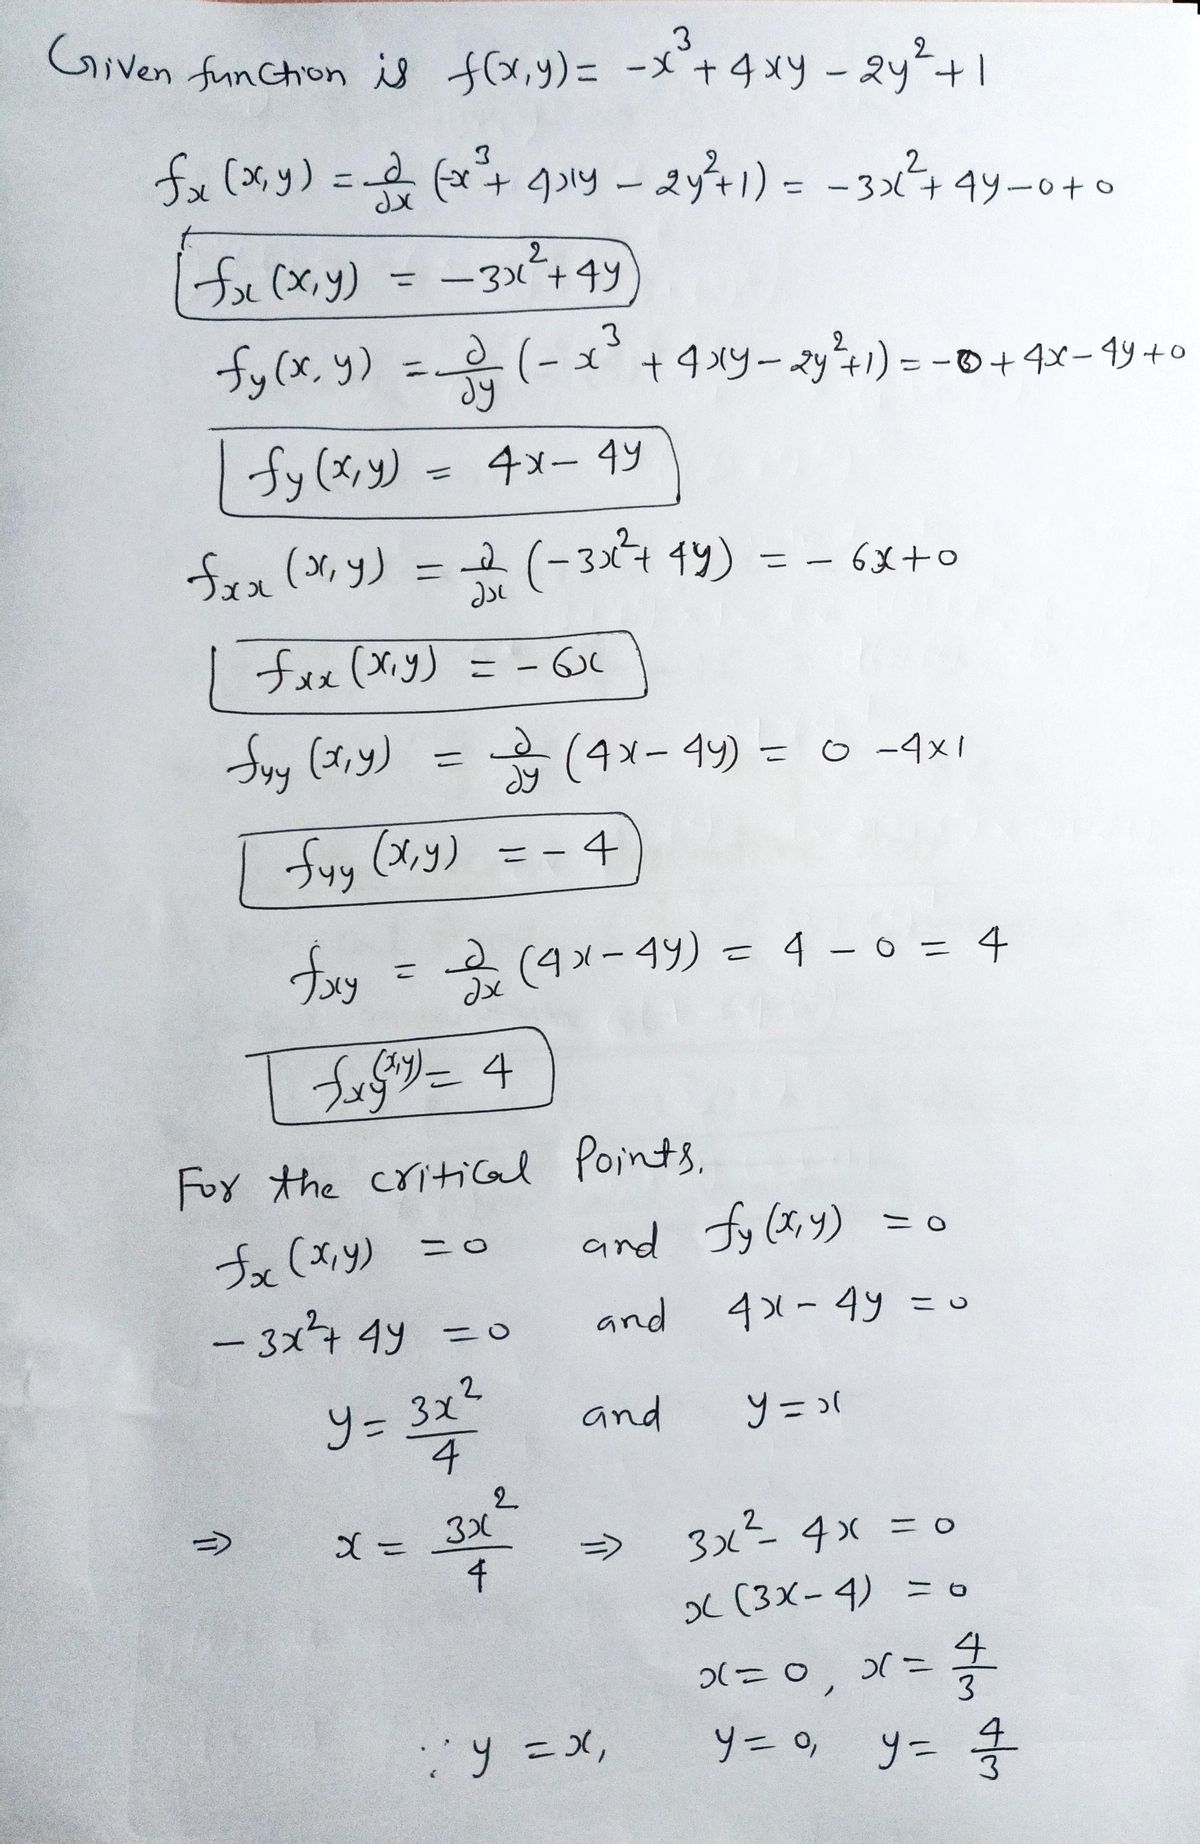 Given function is f(x,y) = -x³ + 4xy - 2y² + 1
fx (x,y) = ∂/∂x (-x³ + 4xy - 2y² + 1) = -3x² + 4y - 0 + 0
fx (x,y) = -3x² + 4y
fy (x,y) = ∂/∂y (-x³ + 4xy - 2y² + 1) = -0 + 4x - 4y + 0
fy (x,y) = 4x - 4y
fxx (x,y) = ∂/∂x (-3x² + 4y) = -6x + 0
fxx (x,y) = -6x
fyy (x,y) = ∂/∂y (4x - 4y) = 0 - 4×1
fyy (x,y) = -4
fxy = ∂/∂x (4x - 4y) = 4 - 0 = 4
fxy (x,y) = 4
For the critical Points,
fx (x,y) = 0 and fy (x,y) = 0
-3x² + 4y = 0 and 4x - 4y = 0
y = 3x²/4 and y = x
⇒ x = 3x²/4 ⇒ 3x² - 4x = 0
x (3x - 4) = 0
x = 0, x = 4/3
∵ y = x, y = 0, y = 4/3